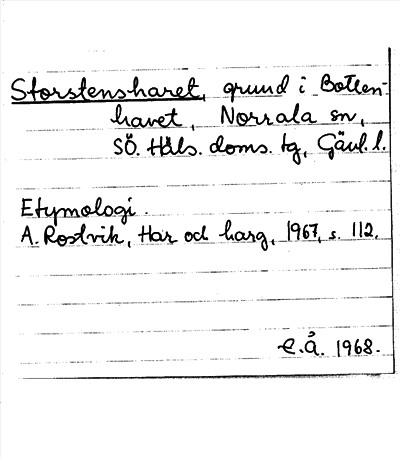 Storstensharet, grund i Botten-
havet, Norrala sn,
SÖ. Häls. doms. tg, Gävl. l.
Etymologi.
A. Rostvik, Har och harg, 1967, s. 112.
E.Å. 1968.